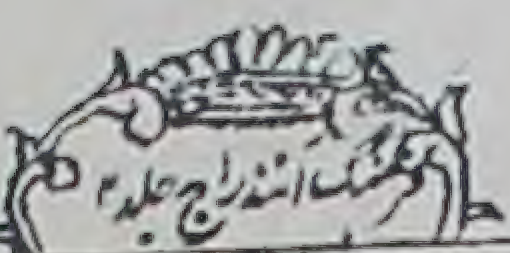 فرهنگ آنندراج جلد م